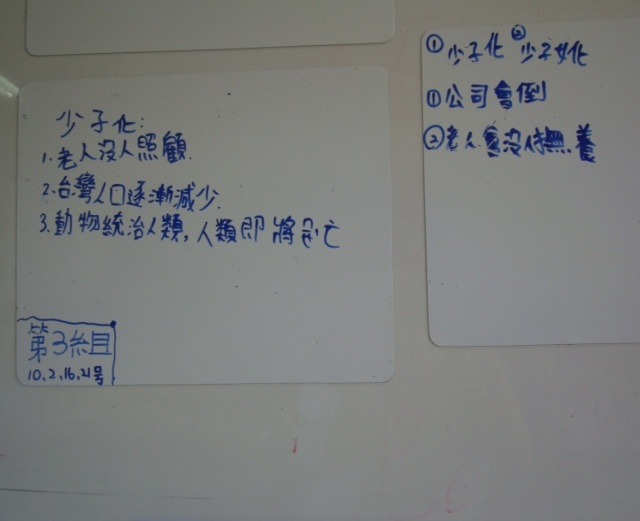 少子化：
1.老人沒人照顧.
2.台灣人口逐漸減少.
3.動物統治人類，人類即將亡
第3組
10.2.16.21号
①少子化 ②少子女化
①公司會倒
②老人會沒撫養